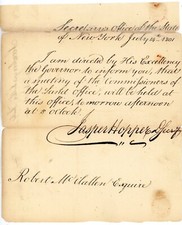 Secretary's Office of the State
of New York July 14th 1801
I am directed by His Excellency
the Governor to inform you, that
a meeting of the Commissioners of
the Land Office, will be held at
this Office, to morrow afternoon
at 5 oClock
Jasper Hopper D Secry
Robert McClallen Esquire